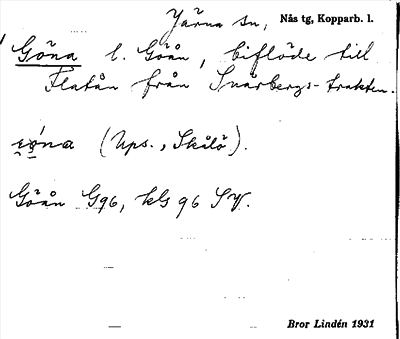 Järna sn, Nås tg, Kopparb. l.
Göna l. Göån, biflöde till
Flatån från Snårbergs-trakten.
(Ups., Skålö).
Göån G96, kls 96 SV.
Bror Lindén 1931